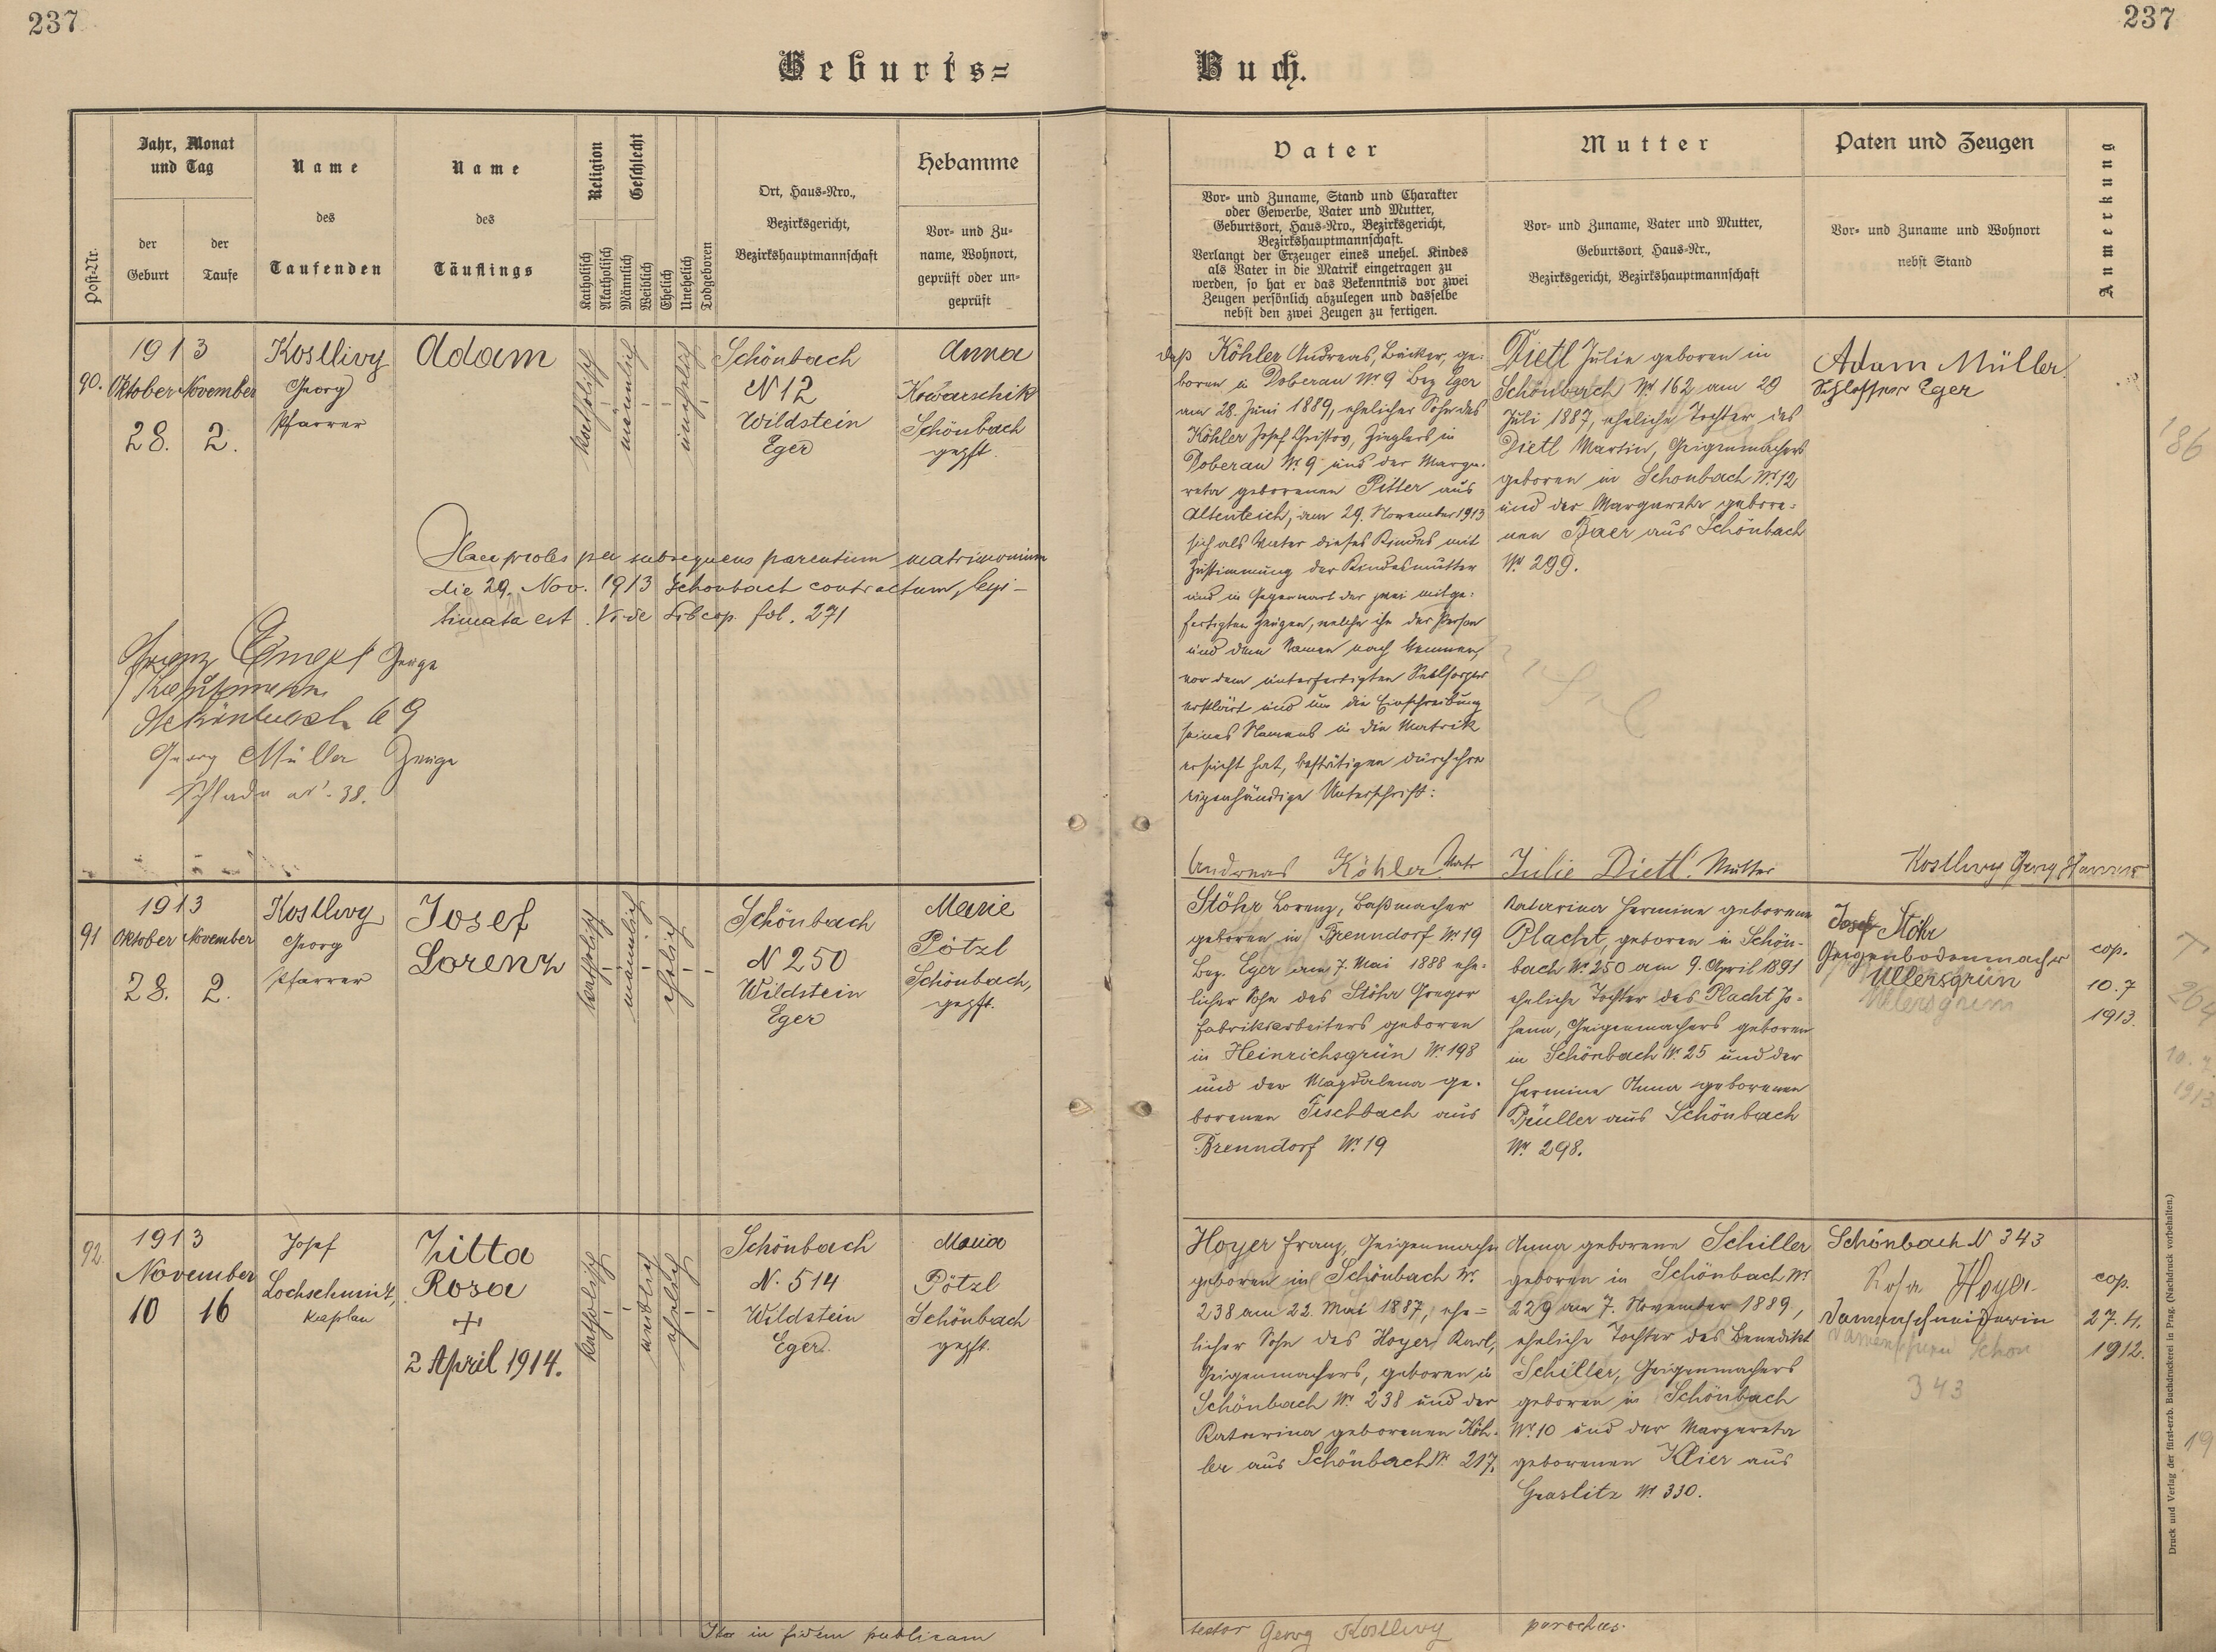 237
237
Geburts=
Buch.
Post-Nr.
Jahr, Monat
und Tag
der
Geburt
der
Taufe
Name
des
Taufenden
Name
des
Täuflings
Religion
Geschlecht
Katholisch
Akatholisch
Männlich
Weiblich
Ehelich
Unehelich
Todgeboren
Ort, Haus-Nro.,
Bezirksgericht,
Bezirkshauptmannschaft
Hebamme
Vor- und Zu-
name, Wohnort,
geprüft oder un-
geprüft
Vater
Vor- und Zuname, Stand und Charakter
oder Gewerbe, Vater und Mutter,
Geburtsort, Haus-Nro., Bezirksgericht,
Bezirkshauptmannschaft.
Verlangt der Erzeuger eines unehel. Kindes
als Vater in die Matrik eingetragen zu
werden, so hat er das Bekenntnis vor zwei
Zeugen persönlich abzulegen und dasselbe
nebst den zwei Zeugen zu fertigen.
Mutter
Vor- und Zuname, Vater und Mutter,
Geburtsort, Haus-Nr.,
Bezirksgericht, Bezirkshauptmannschaft
Paten und Zeugen
Vor- und Zuname und Wohnort
nebst Stand
Anmerkung
90.
1913
Oktober November
28. 2.
Kostlivy
Georg
Pfarrer
Adam
katholisch
männlich
unehelich
Schönbach
N 12
Wildstein
Eger
Anna
Kowarschik
Schönbach
gepft.
Haec proles per subsequens parentium matrimonium
die 29. Nov. 1913 Schönbach contractum, legi-
timata est. Vide Lib cop. fol. 271
Franz Zeuge
Kaufmann
Schönbach 69
Georg Müller Zeuge
Schlada No. 38.
daß Köhler Andreas, Bäcker, ge-
boren in Doberau Nr 9 Bez Eger
am 28. Juni 1889, ehelicher Sohn des
Köhler Josef Christov, Zieglers in
Doberau Nr. 9 und der Marga-
reta geborenen Pitter aus
Altenteich, am 29. November 1913
sich als Vater dieses Kindes mit
Zustimmung der Kindesmutter
und in Gegenwart der zwei mitge-
fertigten Zeugen, welche ihn der Person
und dem Namen nach kennen,
vor dem unterfertigten Seelsorger
erklärt und um die Einschreibung
seines Namens in die Matrik
ersucht hat, bestätigen durch ihre
eigenhändige Unterschrift:
Andreas Köhler Vater
Dietl Julie geboren in
Schönbach Nr 162 am 29
Juli 1887, eheliche Tochter des
Dietl Martin, Geigenmachers
geboren in Schönbach Nr. 12
und der Margareta gebore-
nen Baer aus Schönbach
Nr 299.
Julie Dietl. Mutter
Adam Müller
Schlosser Eger
Kostlivy Georg Pfarrer
186
91
1913
Oktober November
28. 2.
Kostlivy
Georg
Pfarrer
Josef
Lorenz
katholisch
männlich
ehelich
Schönbach
N 250
Wildstein
Eger
Marie
Pötzl
Schönbach,
gepft.
Stöhr Lorenz, Baßmacher
geboren in Brenndorf Nr 19
Bez. Eger am 7. Mai 1888 ehe-
licher Sohn des Stöhr Gregor
Fabriksarbeiters geboren
in Heinrichsgrün Nr. 198
und der Magdalena ge-
borenen Fischbach aus
Brenndorf Nr. 19
Katarina Hermine geborene
Placht, geboren in Schön-
bach Nr. 250 am 9. April 1891
eheliche Tochter des Placht Jo-
hann, Geigenmachers geboren
in Schönbach Nr. 25 und der
Hermine Anna geborenen
Prüller aus Schönbach
Nr. 298.
Josef Stöhr
Geigenbodenmacher
Ullersgrün
Ullersgrün
cop.
10.7
1913.
264
10.7.
1913
92.
1913
November
10 16
Josef
Lochschmidt,
Kaplan
Zitta
Rosa
+
2 April 1914.
katholisch
weiblich
ehelich
Schönbach
N. 514
Wildstein
Eger.
Maria
Pötzl
Schönbach
gepft.
Hoyer Franz, Geigenmacher
geboren in Schönbach Nr.
238 am 22. Mai 1887, ehe-
licher Sohn des Hoyer Karl,
Geigenmachers, geboren in
Schönbach Nr. 238 und der
Katarina geborenen Köh-
ler aus Schönbach Nr. 217.
Anna geborene Schiller
geboren in Schönbach Nr
229 am 7. November 1889,
eheliche Tochter des Benedikt
Schiller, Geigenmachers
geboren in Schönbach
Nr. 10 und der Margareta
geborenen Klier aus
Graslitz Nr. 330.
Schönbach N 343
Rosa Hoyer
Damenschneiderin
343
cop.
27.4.
1912.
19
Ita in fidem publicam
testor Georg Kostlivy parochus.
Druck und Verlag der fürst-erzb. Buchdruckerei in Prag. (Nachdruck vorbehalten.)